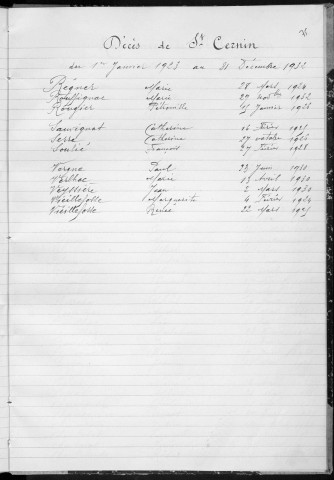 Décès de St Cernin
du 1er Janvier 1923 au 31 Décembre 1932
Régner Marie 28 Mars 1924
Marie 29 1932
Rougier Pétronille Janvier 1928
Sauvignat Catherine 16 Févr
Serre Catherine 27 octobre 1926
Soulié François 27 Févr 1928
Vergne Paul 23 Juin 1930
Marie 15 Avril 1930
Veyssière Jean 2 Mars 1930
Vieillefosse Marguerite 4 Févr 1924
Vieillefosse 22 Mars